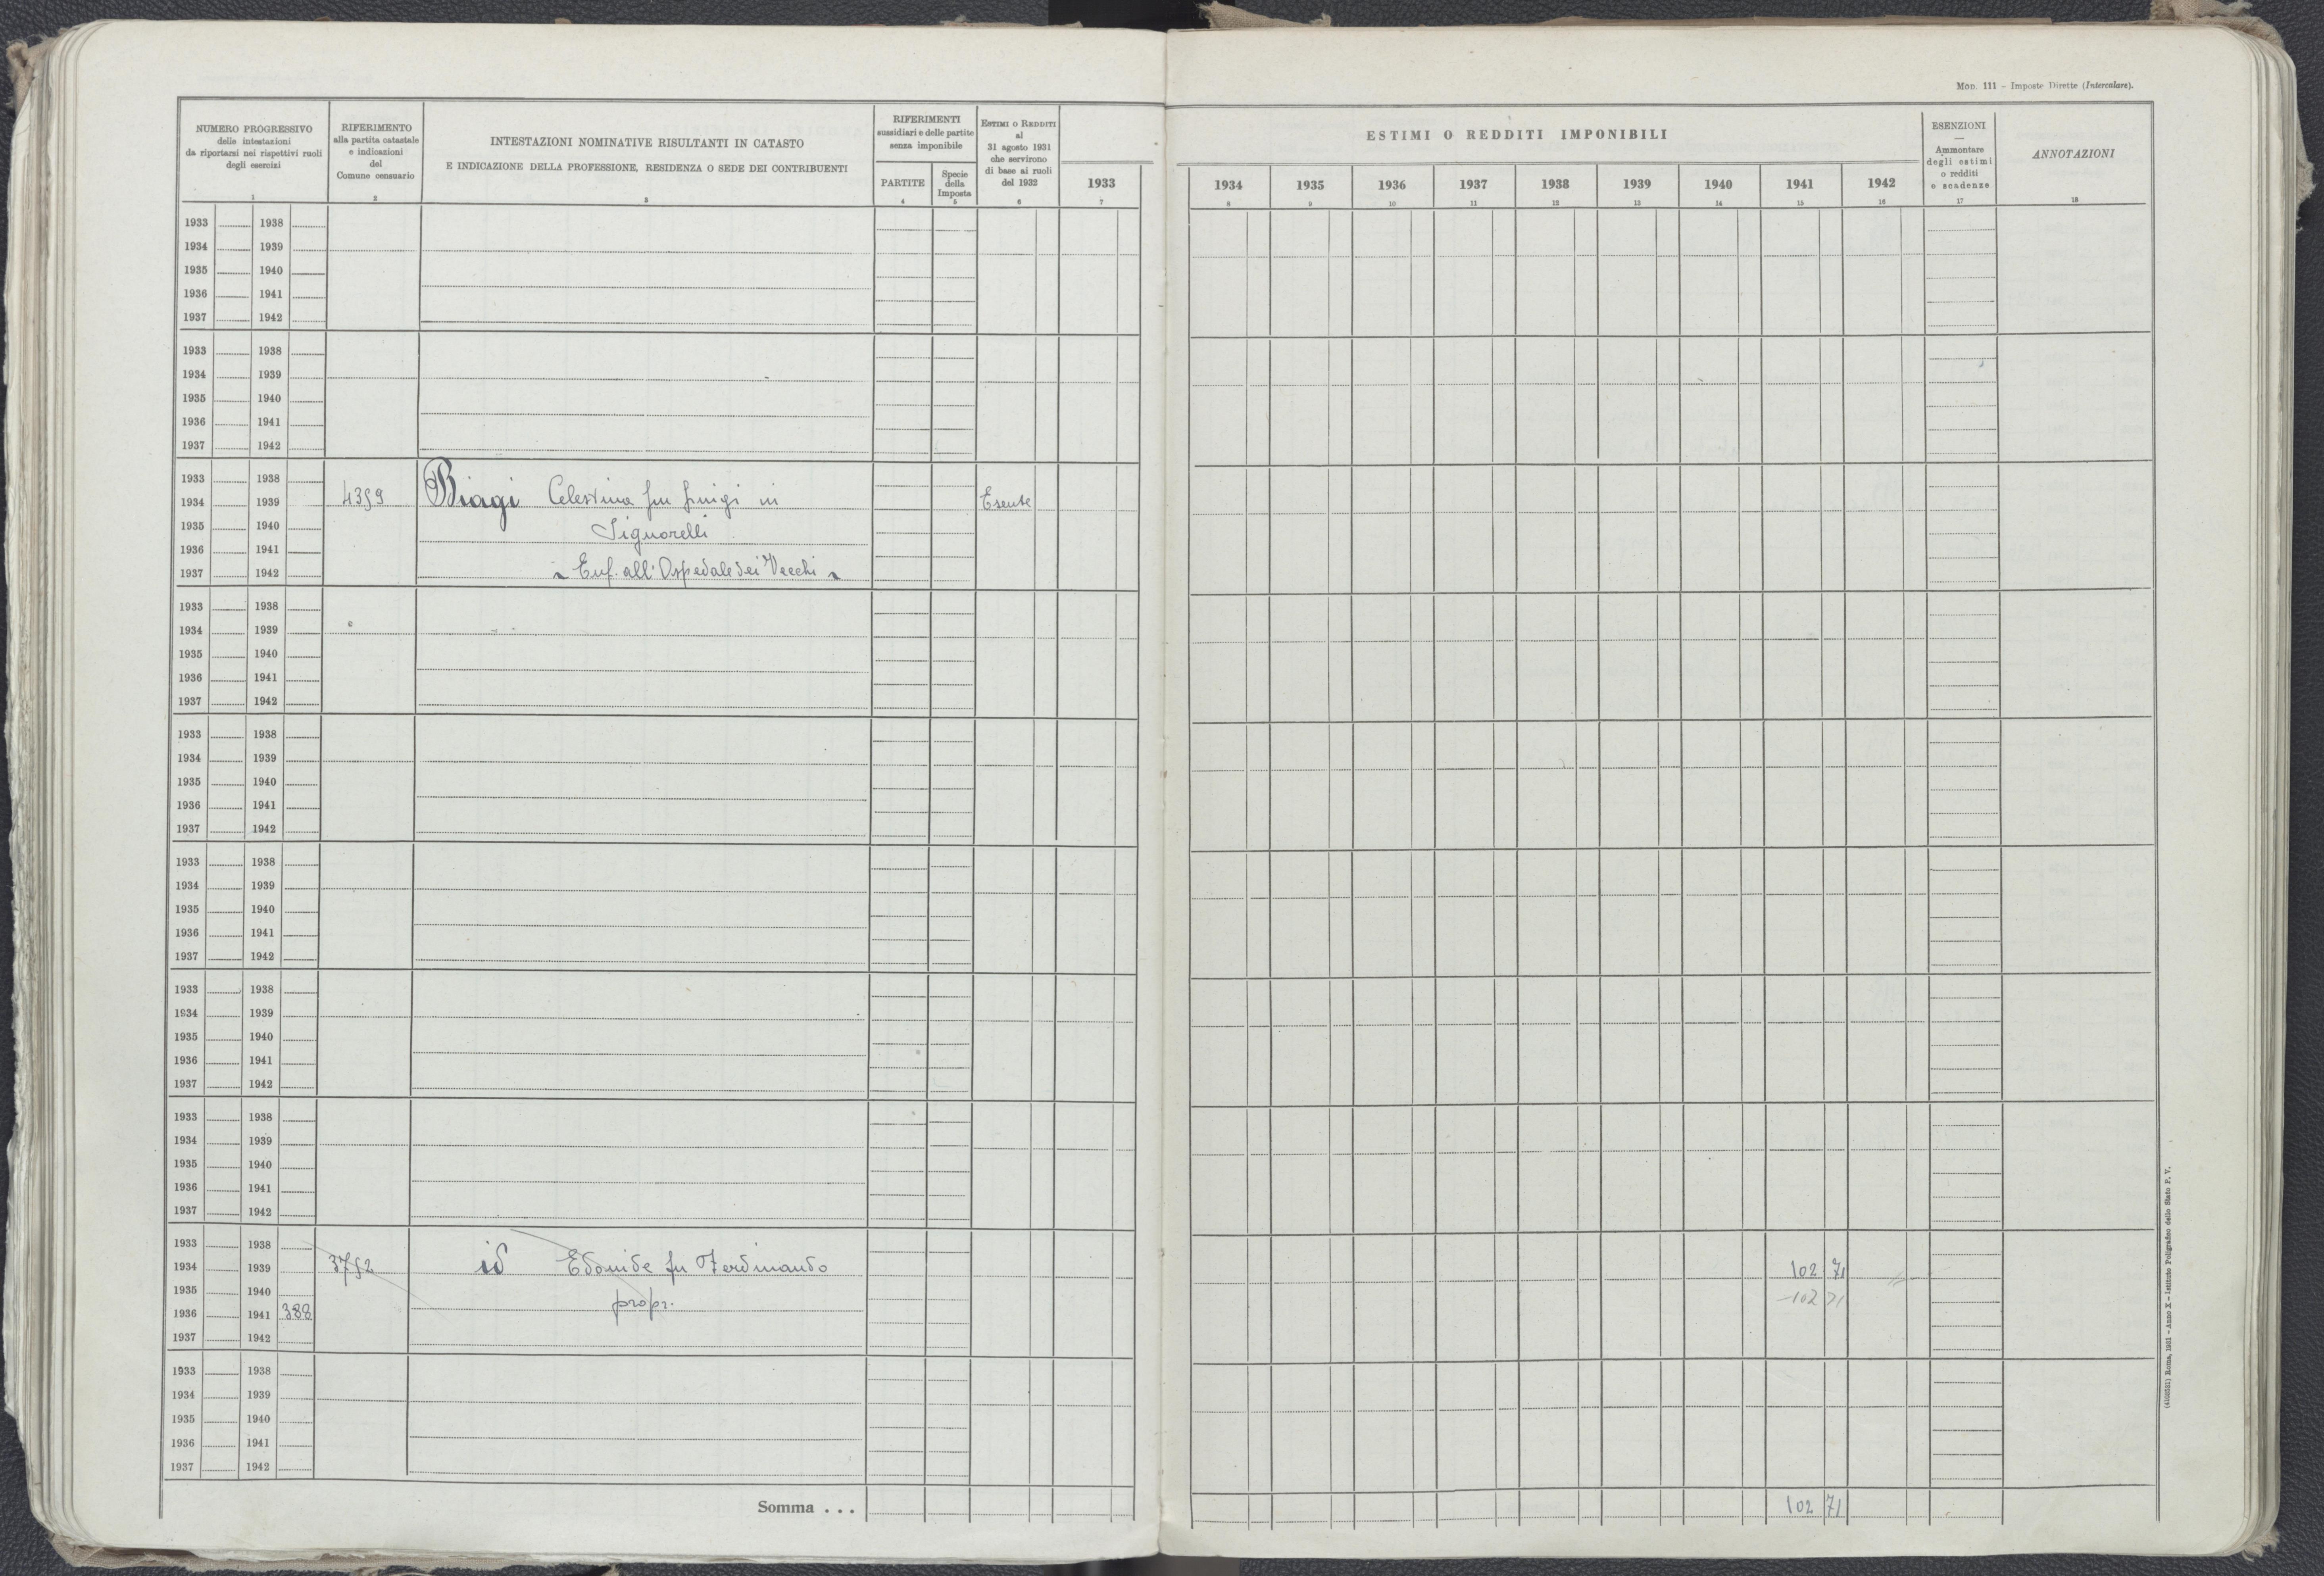 Mod. 111 - Imposte Dirette (Intercalare).
NUMERO PROGRESSIVO
delle intestazioni
da riportarsi nei rispettivi ruoli
degli esercizi
1
RIFERIMENTO
alla partita catastale
e indicazioni
del
Comune censuario
2
INTESTAZIONI NOMINATIVE RISULTANTI IN CATASTO
E INDICAZIONE DELLA PROFESSIONE, RESIDENZA O SEDE DEI CONTRIBUENTI
3
RIFERIMENTI
sussidiari e delle partite
senza imponibile
PARTITE
4
Specie
della
Imposta
5
ESTIMI O REDDITI
al
31 agosto 1931
che servirono
di base ai ruoli
del 1932
6
1933
7
ESTIMI O REDDITI IMPONIBILI
1934 1935 1936 1937 1938 1939 1940 1941 1942
8 9 10 11 12 13 14 15 16
ESENZIONI
—
Ammontare
degli estimi
o redditi
e scadenze
17
ANNOTAZIONI
18
1933 1938
1934 1939
1935 1940
1936 1941
1937 1942
1933 1938
1934 1939
1935 1940
1936 1941
1937 1942
1933 1938
1934 1939 4359 Biagi Celestina fu Luigi in Esente
1935 1940 Signorelli
1936 1941
1937 1942 " Enf. all' Ospedale dei Vecchi "
1933 1938
1934 1939
1935 1940
1936 1941
1937 1942
1933 1938
1934 1939
1935 1940
1936 1941
1937 1942
1933 1938
1934 1939
1935 1940
1936 1941
1937 1942
1933 1938
1934 1939
1935 1940
1936 1941
1937 1942
1933 1938
1934 1939
1935 1940
1936 1941
1937 1942
1933 1938
1934 1939 3752 id Edonide fu Ferdinando 102 71
1935 1940 propr. -102 71
1936 1941 388
1937 1942
1933 1938
1934 1939
1935 1940
1936 1941
1937 1942
Somma . . . 102 71
(4102531) Roma, 1931 - Anno X - Istituto Poligrafico dello Stato P. V.